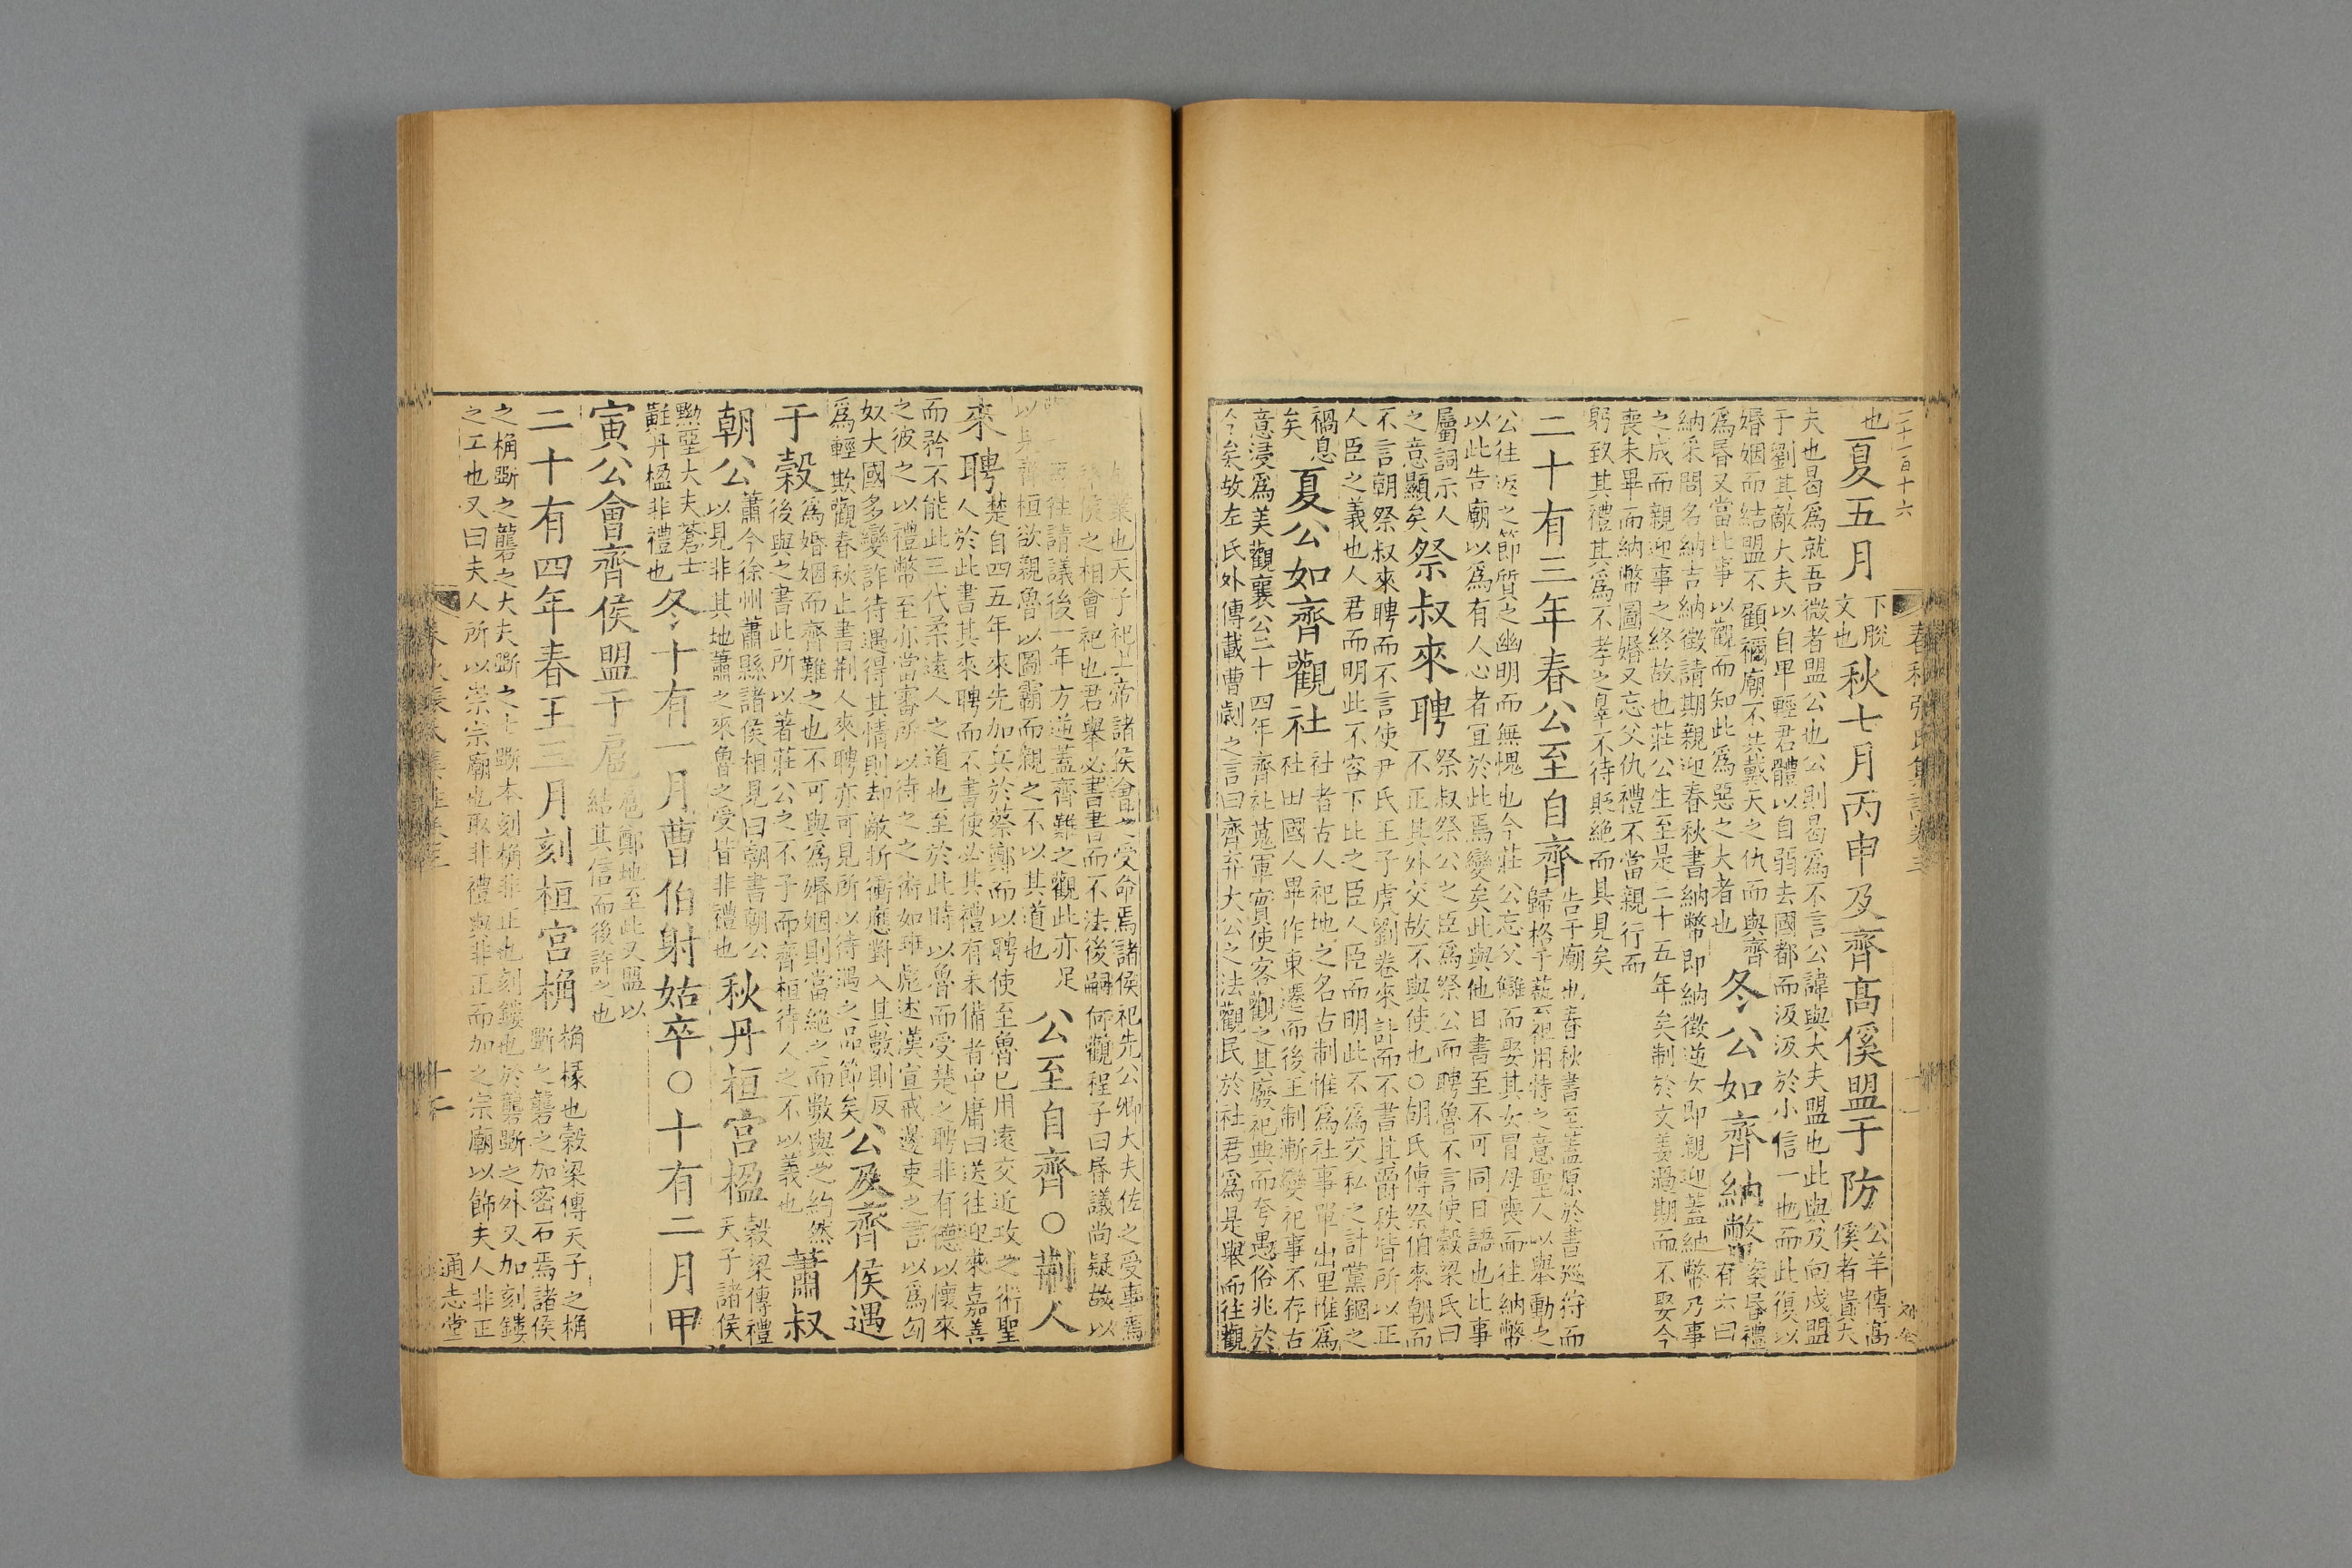 二十一百十六
春秋張氏集註卷三
也夏五月下脫文也秋七月丙申及齊高傒盟于防公羊傳高
傒者貴大
夫也曷為就吾微者盟公也公則曷為不言公諱與大夫盟也此與及向戌盟
于劉其敵大夫以自卑輕君體以自弱去國都而汲汲於小信一也而此復以
婚姻而結盟不顧禰廟不共戴天之仇而與齊
為昏又當此事以觀而知此為惡之大者也冬公如齊納幣案昏禮
有六曰
納采問名納吉納徵請期親迎春秋書納幣即納徵逆女即親迎蓋納幣乃事
之成而親迎事之終故也莊公生至是二十五年矣制於文姜過期而不娶今
喪未畢而納幣圖婚又忘父仇禮不當親行而
躬致其禮其為不孝之辠不待貶絶而具見矣
二十有三年春公至自齊告于廟也春秋書至蓋原於書巡狩而
歸格于藝祖用特之意聖人以舉動之
公往返之節質之幽明而無愧也今莊公忘父讎而娶其女冒母喪而往納幣
以此告廟以為有人心者宜於此焉變矣此與他日書至不可同日語也比事
屬詞示人
之意顯矣祭叔來聘祭叔祭公之臣為祭公而聘魯不言使榖梁氏曰
不正其外交故不與使也○胡氏傳祭伯來朝而
不言朝祭叔來聘而不言使尹氏王子虎劉卷來訃而不書其爵秩皆所以正
人臣之義也人君而明此不容下比之臣人臣而明此不為交私之計黨錮之
禍息
矣夏公如齊觀社社者古人祀地之名古制惟為社事單出里惟為
社田國人畢作東遷而後王制漸變祀事不存古
意浸為美觀襄公二十四年齊社蒐軍實使客觀之其廢祀典而夸愚俗兆於
今矣故左氏外傳載曹劌之言曰齊弃大公之法觀民於社君為是舉而往觀
也天子祀上帝諸侯會之受命焉諸侯祀先公卿大夫佐之受事焉
之相會祀也君舉必書書而不法後嗣何觀程子曰昏議尚疑故以
往請議後一年方逆蓋齊難之觀此亦足
以見齊桓欲親魯以圖霸而親之不以其道也公至自齊○荆人
來聘楚自四五年來先加兵於蔡鄭而以聘使至魯已用遠交近攻之術聖
人於此書其來聘而不書使必其禮有未備者中庸曰送往迎來嘉善
而矜不能此三代柔遠人之道也至於此時以魯而受楚之聘非有德以懷來
之彼之以禮幣至亦當審所以待之之術如班彪述漢宣戒邊吏之言以為匈
奴大國多變詐待遇得其情則却敵折衝應對入其數則反
為輕欺觀春秋止書荆人來聘亦可見所以待遇之品節矣公及齊侯遇
于穀為婚姻而齊難之也不可與為婚姻則當絶之而數與之約然
後與之書此所以著莊公之不子而齊桓待人之不以義也蕭叔
朝公蕭今徐州蕭縣諸侯相見曰朝書朝公
以見非其地蕭之來魯之受皆非禮也秋丹桓宮楹榖梁傳禮
天子諸侯
黝堊大夫蒼士
黈丹楹非禮也冬十有一月曹伯射姑卒○十有二月甲
寅公會齊侯盟于扈扈鄭地至此又盟以
結其信而後許之也
二十有四年春王三月刻桓宮桷桷椽也榖梁傳天子之桷
斵之礱之加密石焉諸侯
之桷斵之礱之大夫斵之士斵本刻桷非正也刻鏤也於礱斵之外又加刻鏤
之工也又曰夫人所以崇宗廟也取非禮與非正而加之宗廟以飾夫人非正
春秋張氏集註卷三
十二
通志堂